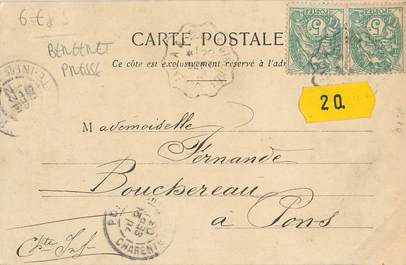 6€
BERGERET
PRESSE
CARTE POSTALE
Ce côté est exclusivement réservé à l'adr
20.
Mademoiselle
Fernande
Bouchereau
a Pons
Chte Inf
CHARENTE